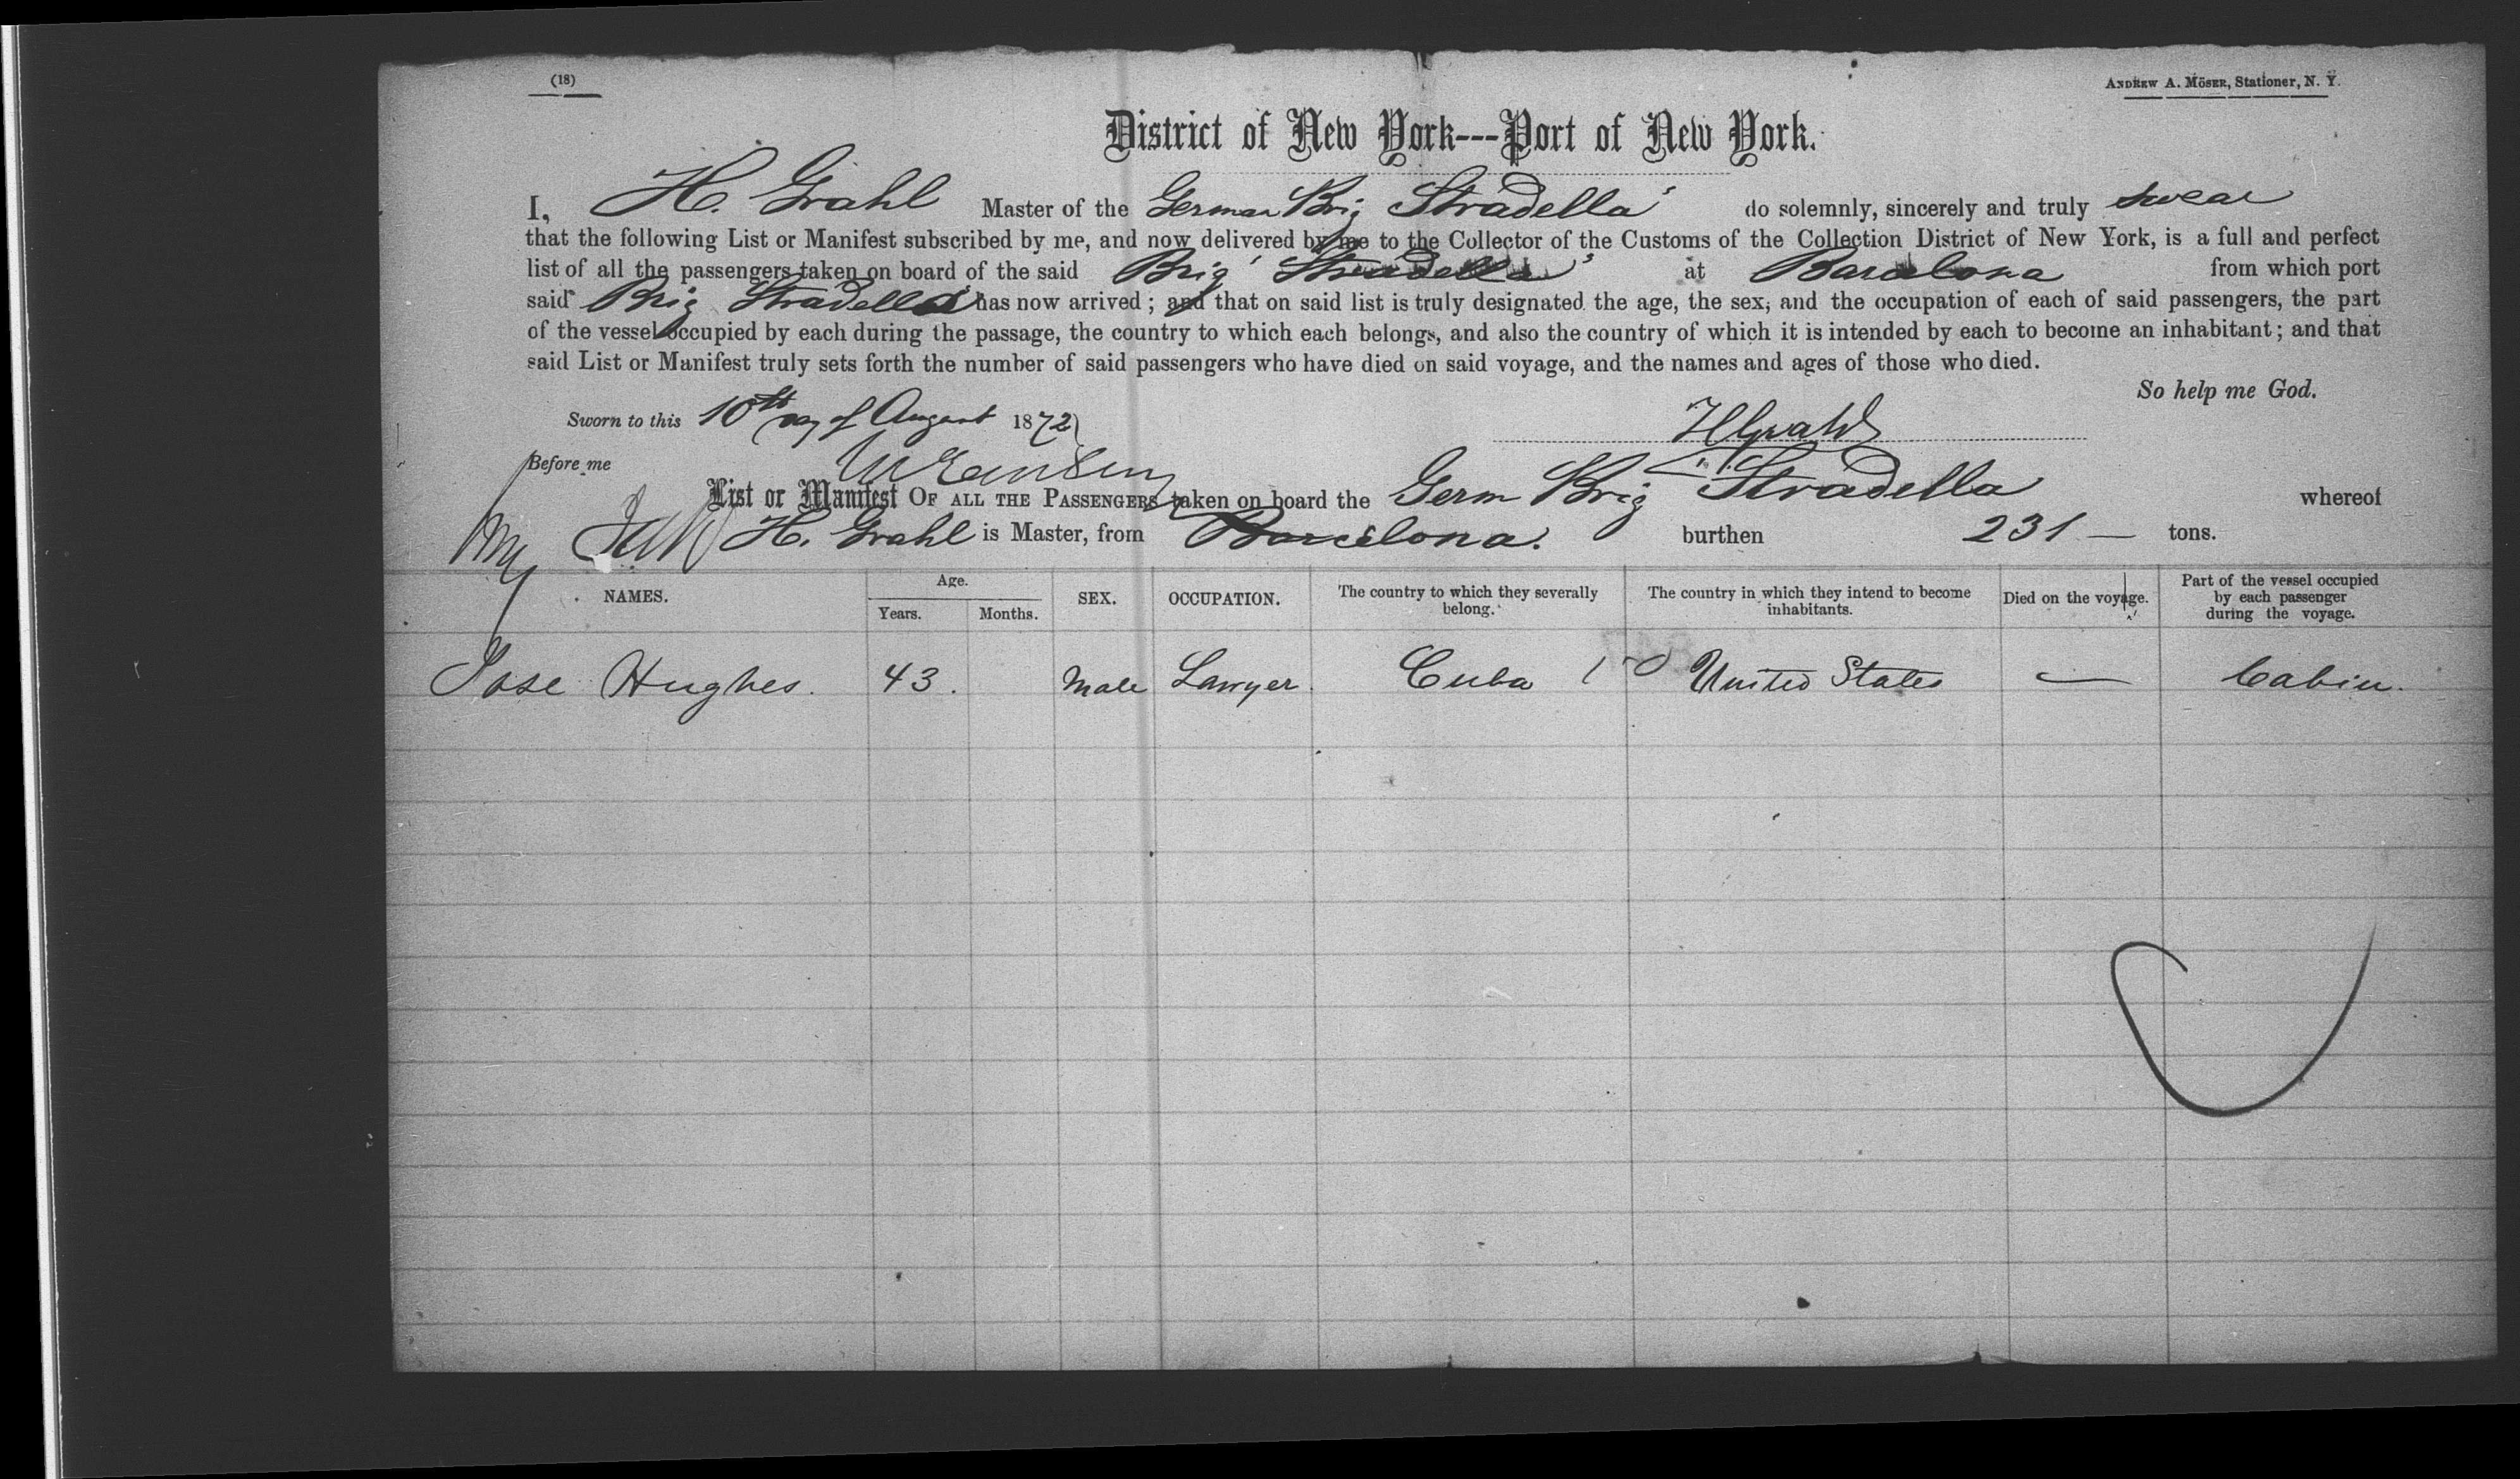 (18)
ANDREW A. MÖSER, Stationer, N. Y.
District of New York---Port of New York.
I, H. Grahl Master of the German Brig Stradella' do solemnly, sincerely and truly swear
that the following List or Manifest subscribed by me, and now delivered by me to the Collector of the Customs of the Collection District of New York, is a full and perfect
list of all the passengers taken on board of the said Brig' Stradella' at Barcelona from which port
said Brig Stradella has now arrived; and that on said list is truly designated the age, the sex, and the occupation of each of said passengers, the part
of the vessel occupied by each during the passage, the country to which each belongs, and also the country of which it is intended by each to become an inhabitant; and that
said List or Manifest truly sets forth the number of said passengers who have died on said voyage, and the names and ages of those who died.
So help me God.
Sworn to this 10th day of August 1872
HGrahl
Before me
List or Manifest OF ALL THE PASSENGERS taken on board the Germ Brig Stradella whereof
H. Grahl is Master, from Barcelona. burthen 231 — tons.
NAMES. Age. Years. Months. SEX. OCCUPATION. The country to which they severally belong. The country in which they intend to become inhabitants. Died on the voyage. Part of the vessel occupied by each passenger during the voyage.
Jose Hughes. 43. Male Lawyer. Cuba United States — Cabin.